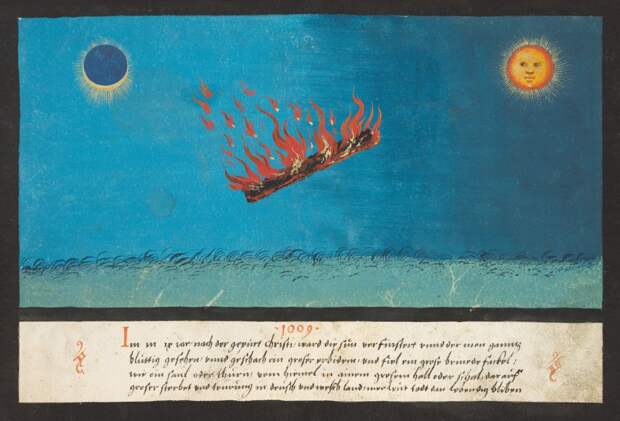 ·1009·
Im m ix iar nach der gepurt Christi, ward die sun verfinstert vnnd der mon ganntz
bluttig gesehen, vnnd geschach ein groser erdbidem, vnd fiel ein grose brinede fackel,
wie ein saul oder thurn, vom hiemel in ainem grosem hall oder schal, darauff
groser sterbet vnd tewrung in deusch vnd welsch land, mer leut todt dan lewendig bliben